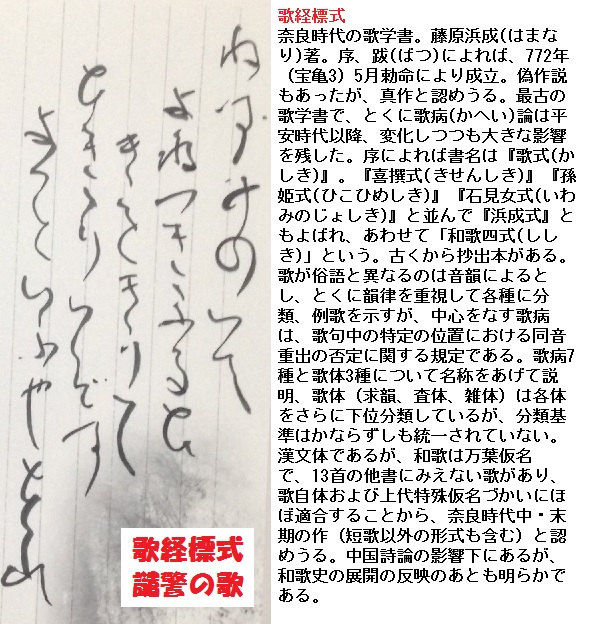 ねずみのいへ
よねつきふるひ
きをきりて
ひききりいだす
よつといふやそれ
歌経標式
譴警の歌
歌経標式
奈良時代の歌学書。藤原浜成(はまな
り)著。序、跋(ばつ)によれば、772年
(宝亀3)5月勅命により成立。偽作説
もあったが、真作と認めうる。最古の
歌学書で、とくに歌病(かへい)論は平
安時代以降、変化しつつも大きな影響
を残した。序によれば書名は『歌式(か
しき)』。『喜撰式(きせんしき)』『孫
姫式(ひこひめしき)』『石見女式(いわ
みのじょしき)』と並んで『浜成式』と
もよばれ、あわせて「和歌四式(しし
き)」という。古くから抄出本がある。
歌が俗語と異なるのは音韻によると
し、とくに韻律を重視して各種に分
類、例歌を示すが、中心をなす歌病
は、歌句中の特定の位置における同音
重出の否定に関する規定である。歌病7
種と歌体3種について名称をあげて説
明、歌体(求韻、査体、雑体)は各体
をさらに下位分類しているが、分類基
準はかならずしも統一されていない。
漢文体であるが、和歌は万葉仮名
で、13首の他書にみえない歌があり、
歌自体および上代特殊仮名づかいにほ
ぼ適合することから、奈良時代中・末
期の作(短歌以外の形式も含む)と認
めうる。中国詩論の影響下にあるが、
和歌史の展開の反映のあとも明らかで
ある。